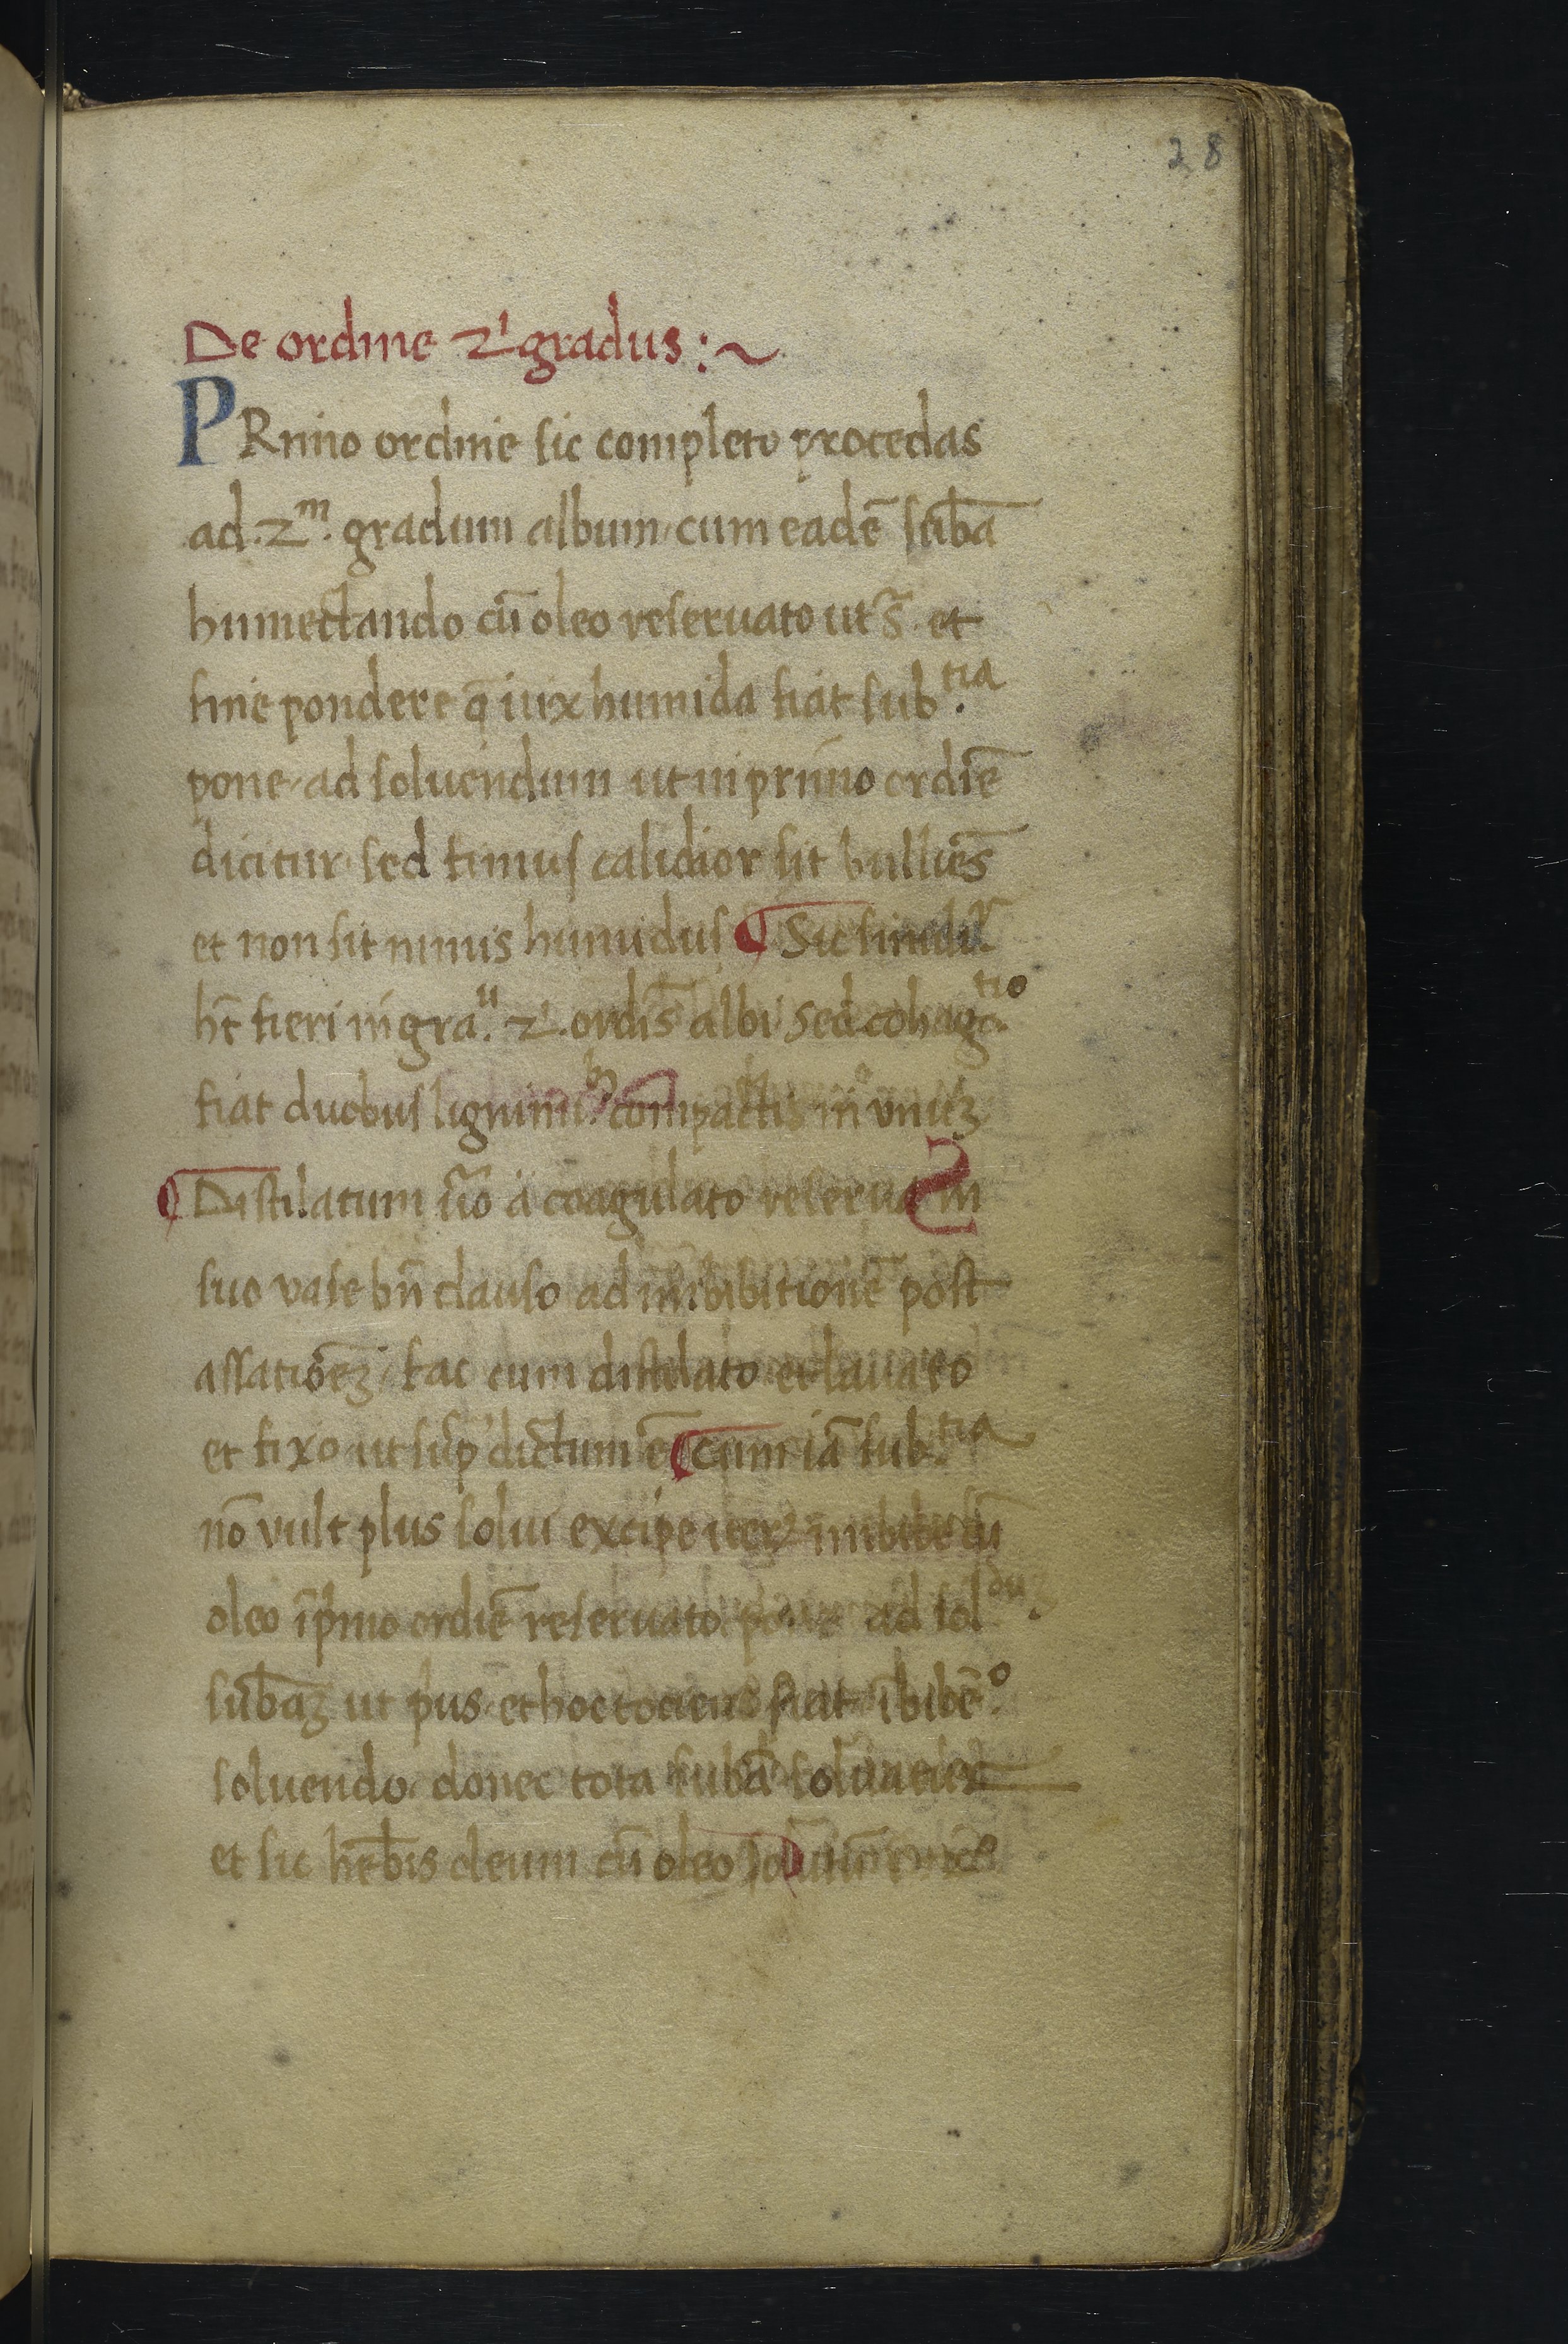 28
De ordine 2ⁱ gradus :~
PRimo ordine sic completo procedas
ad .2ᵐ. gradum album cum eadē sūba
humectando cū oleo reseruato ut s̄. et
sine pondere q̄ uix humida fiat sub.ᵗⁱᵃ
pone ad soluendum ut in primo ordiē
dicitur sed fimus calidior sit bulliēs
et non sit nimis humidus Sic simil'r
ħt fieri in gra.ᵘ 2. ordīs albi sed cohagᵗⁱᵒ.
fiat duobus ligninu.ᵇ compactis in unuʒ
Distilatum ūo a coagulato reserua in
suo vase bn̄ clauso ad inbibitionē post
assationēʒ fac cum distilato et lauato
et fixo ut sup̄ dictum ē cum iā sub.ᵗⁱᵃ
nō vult plus solui excipe iter imbibe cū
oleo īprimo ordiē reseruato pone ad solᵈᵘʒ.
sūbaʒ ut pus et hoc tociens fiat ībibē.ᵒ
soluendo donec tota sūba soluatur
et sic hēbis oleum cū oleo